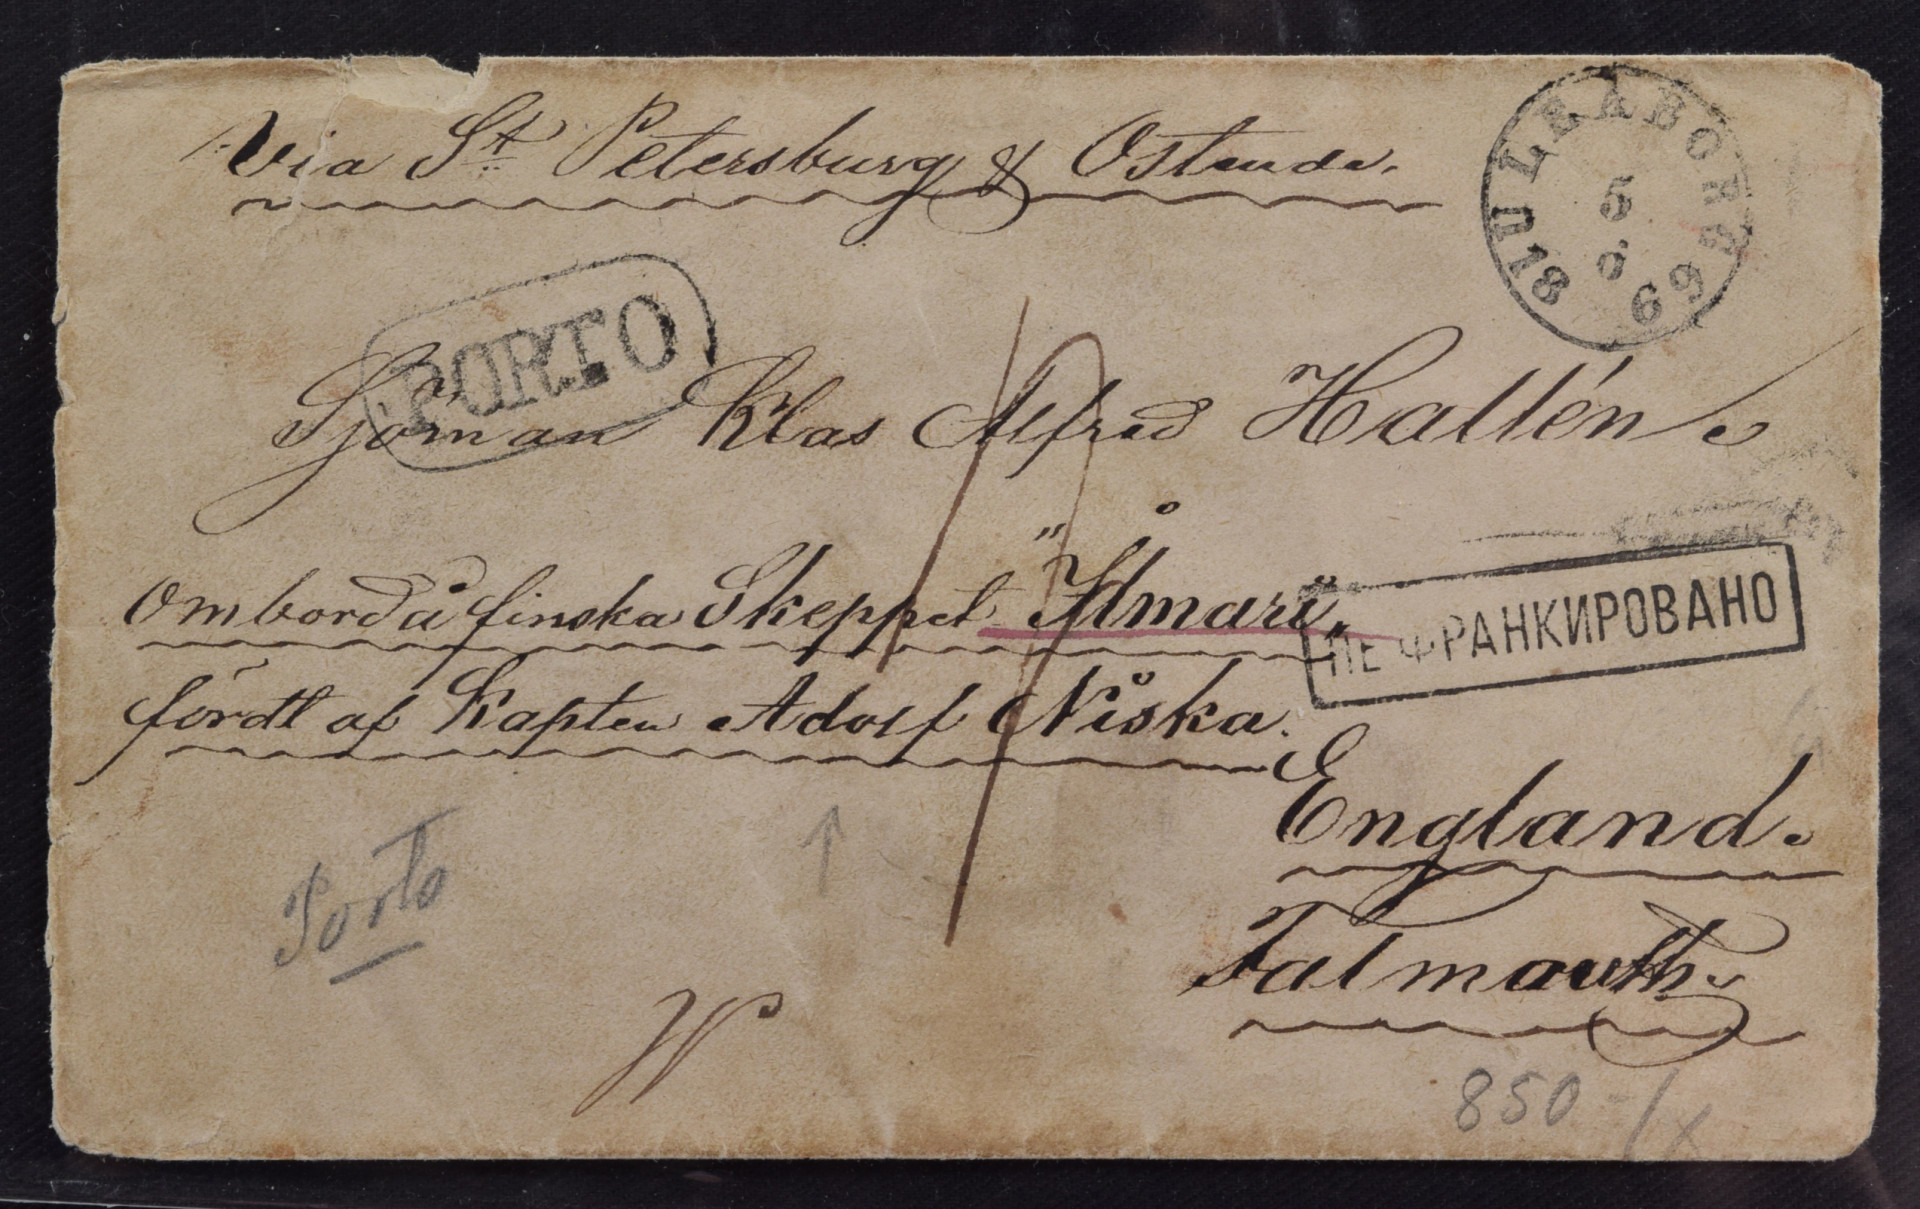 via St. Petersburg & Ostende.
ULEÅBORG
5
6
1869
PORTO
Sjöman Klas Alfred Hallén.
Ombord å finska Skeppet "Ilmari"
НЕ ФРАНКИРОВАНО
fördt af Kapten Adolf Niska.
England.
Falmouth.
Porto
850